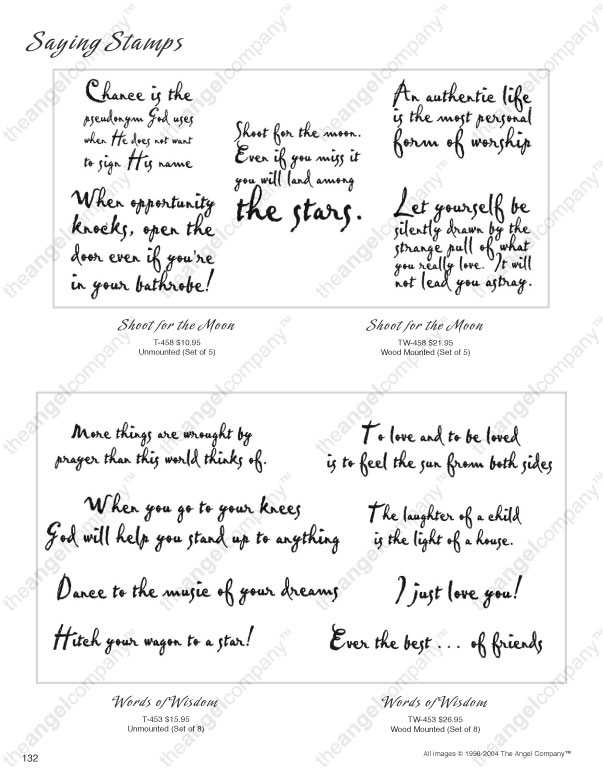 Saying Stamps
Chance is the
pseudonym God uses
when He does not want
to sign His name
When opportunity
knocks, open the
door even if you're
in your bathrobe!
Shoot for the moon.
Even if you miss it
you will land among
the stars.
An authentic life
is the most personal
form of worship
Let yourself be
silently drawn by the
strange pull of what
you really love. It will
not lead you astray.
Shoot for the Moon
T-458 $10.95
Unmounted (Set of 5)
Shoot for the Moon
TW-458 $21.95
Wood Mounted (Set of 5)
More things are wrought by
prayer than this world thinks of.
When you go to your knees
God will help you stand up to anything
Dance to the music of your dreams
Hitch your wagon to a star!
To love and to be loved
is to feel the sun from both sides
The laughter of a child
is the light of a house.
I just love you!
Ever the best ... of friends
Words of Wisdom
T-453 $15.95
Unmounted (Set of 8)
Words of Wisdom
TW-453 $26.95
Wood Mounted (Set of 8)
132
All images © 1998-2004 The Angel Company™
theangelcompany™